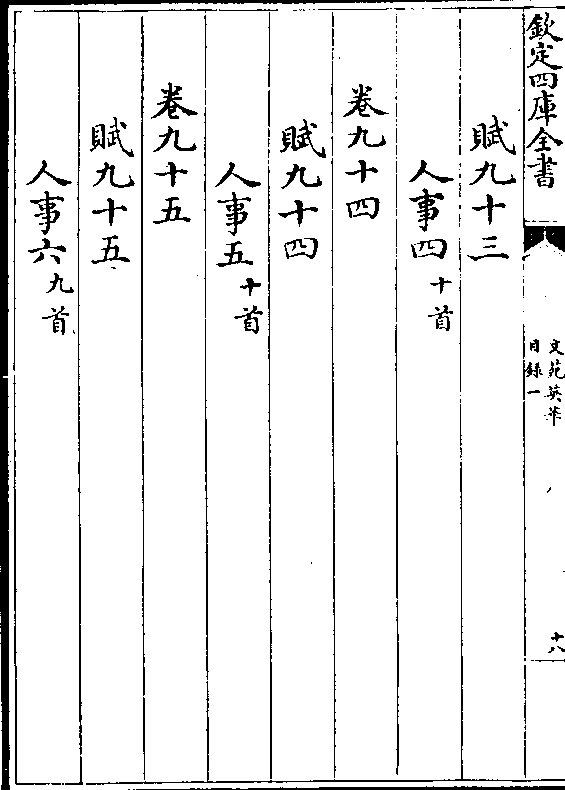 欽定四庫全書
文苑英華
目録一
十八
賦九十三
人事四十首
卷九十四
賦九十四
人事五十首
卷九十五
賦九十五
人事六九首